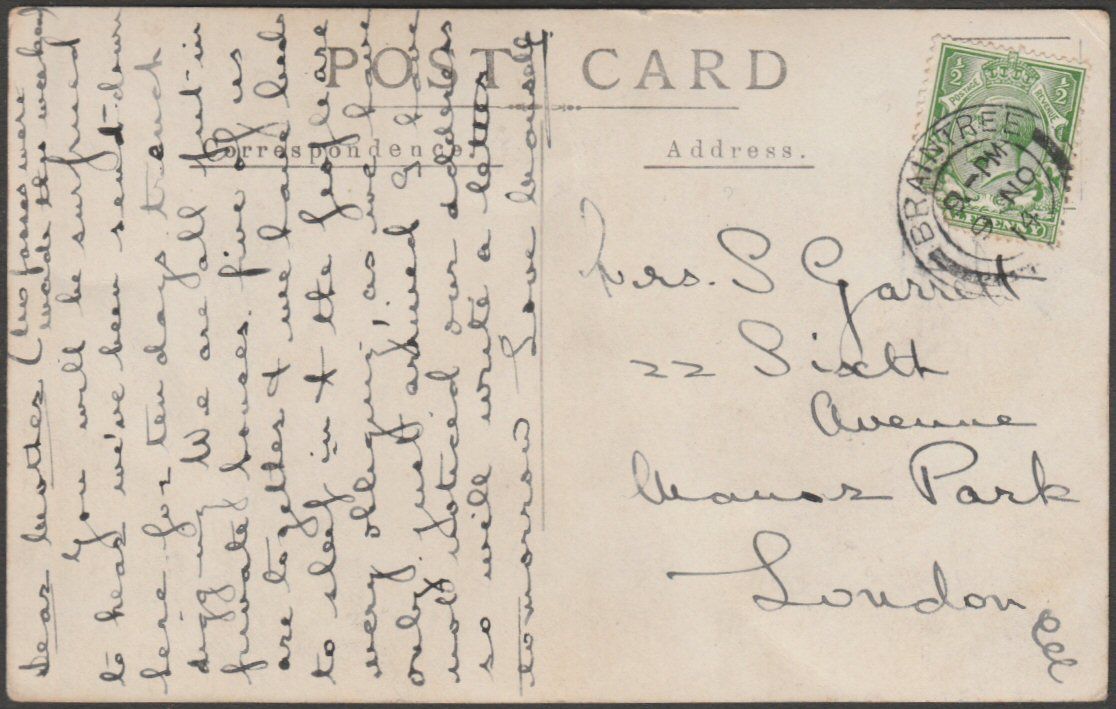 POST CARD
Correspondence.
Address.
Dear Mother (Two passes were
made this week)
You will be surprised
to hear we've been sent down
here for ten days trench
digging. We are all put in
private houses. five of us
are together & we have beds
to sleep in & the people are
very obliging as we have
only just arrived I have
not noticed our address
so will write a letter
tomorrow Love
Mrs. S Garrett
22 Sixth
Avenue
Manor Park
London
½ ½
POSTAGE REVENUE
HALFPENNY
BRAINTREE
9 NO
14